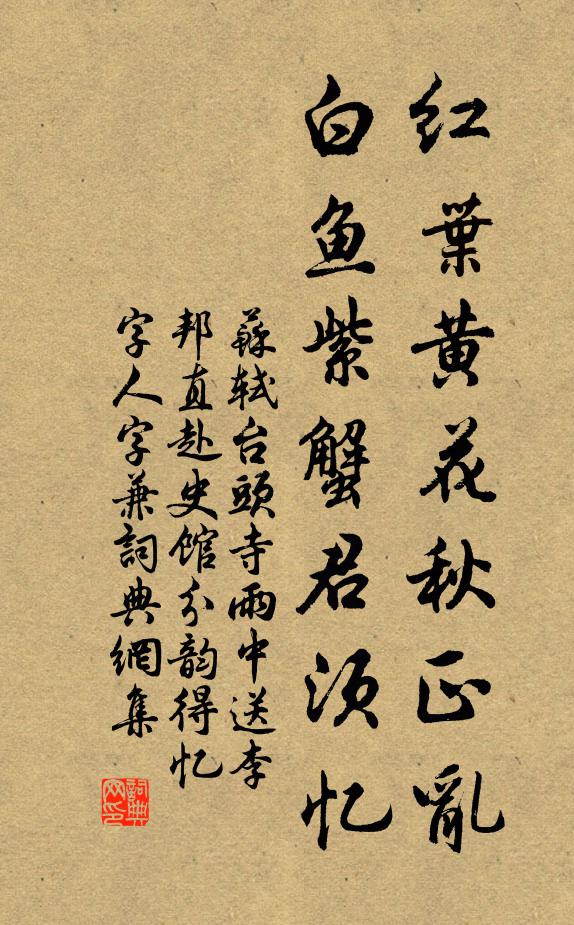 红葉黄花秋正亂
白鱼紫蟹君须忆
蘇轼台頭寺雨中送李
邦直赴史馆分韵得忆
字人字兼詞典網集
詞典网印